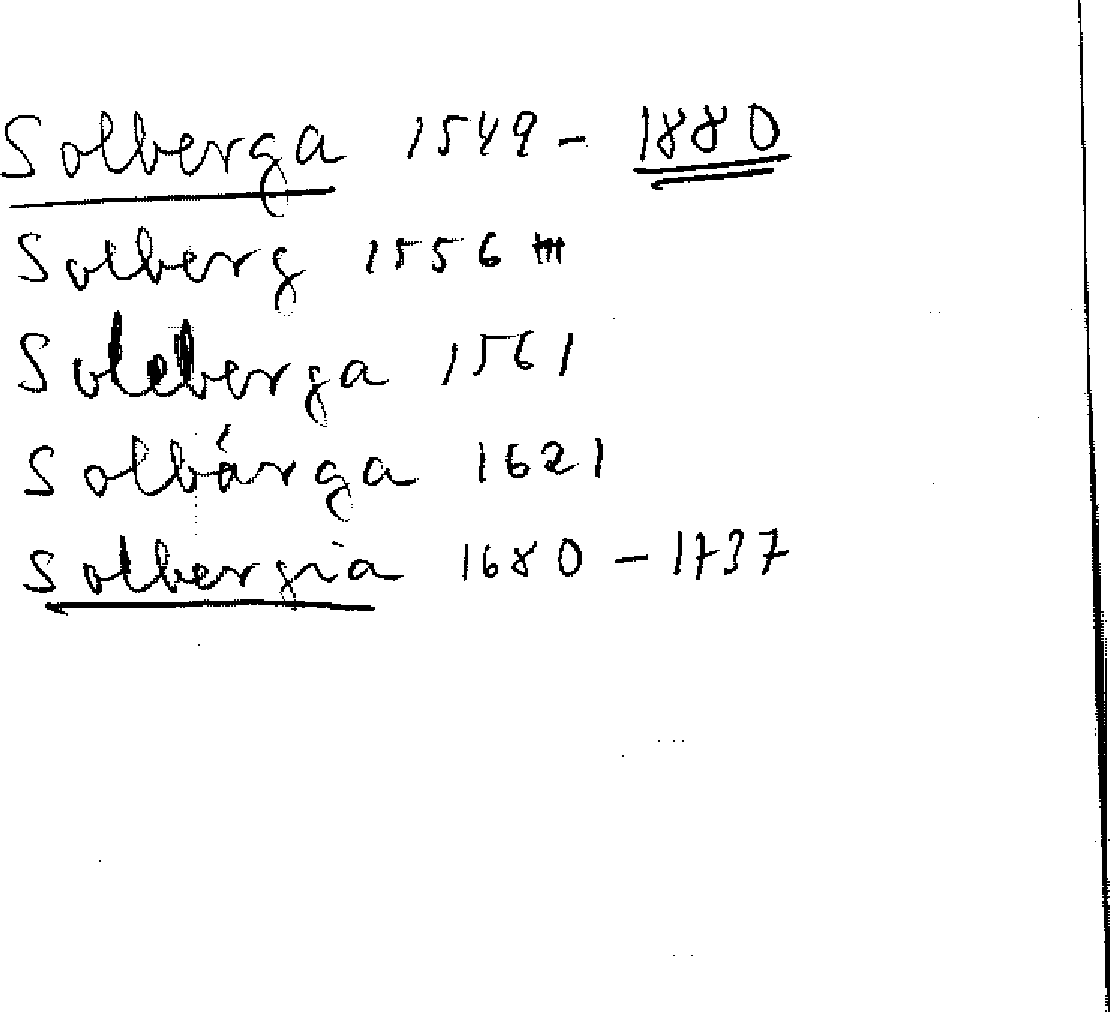 Solberga 1549 - 1880
Solberg 1556 m
Soleberga 1561
Solbárga 1621
Solbergia 1680 - 1737